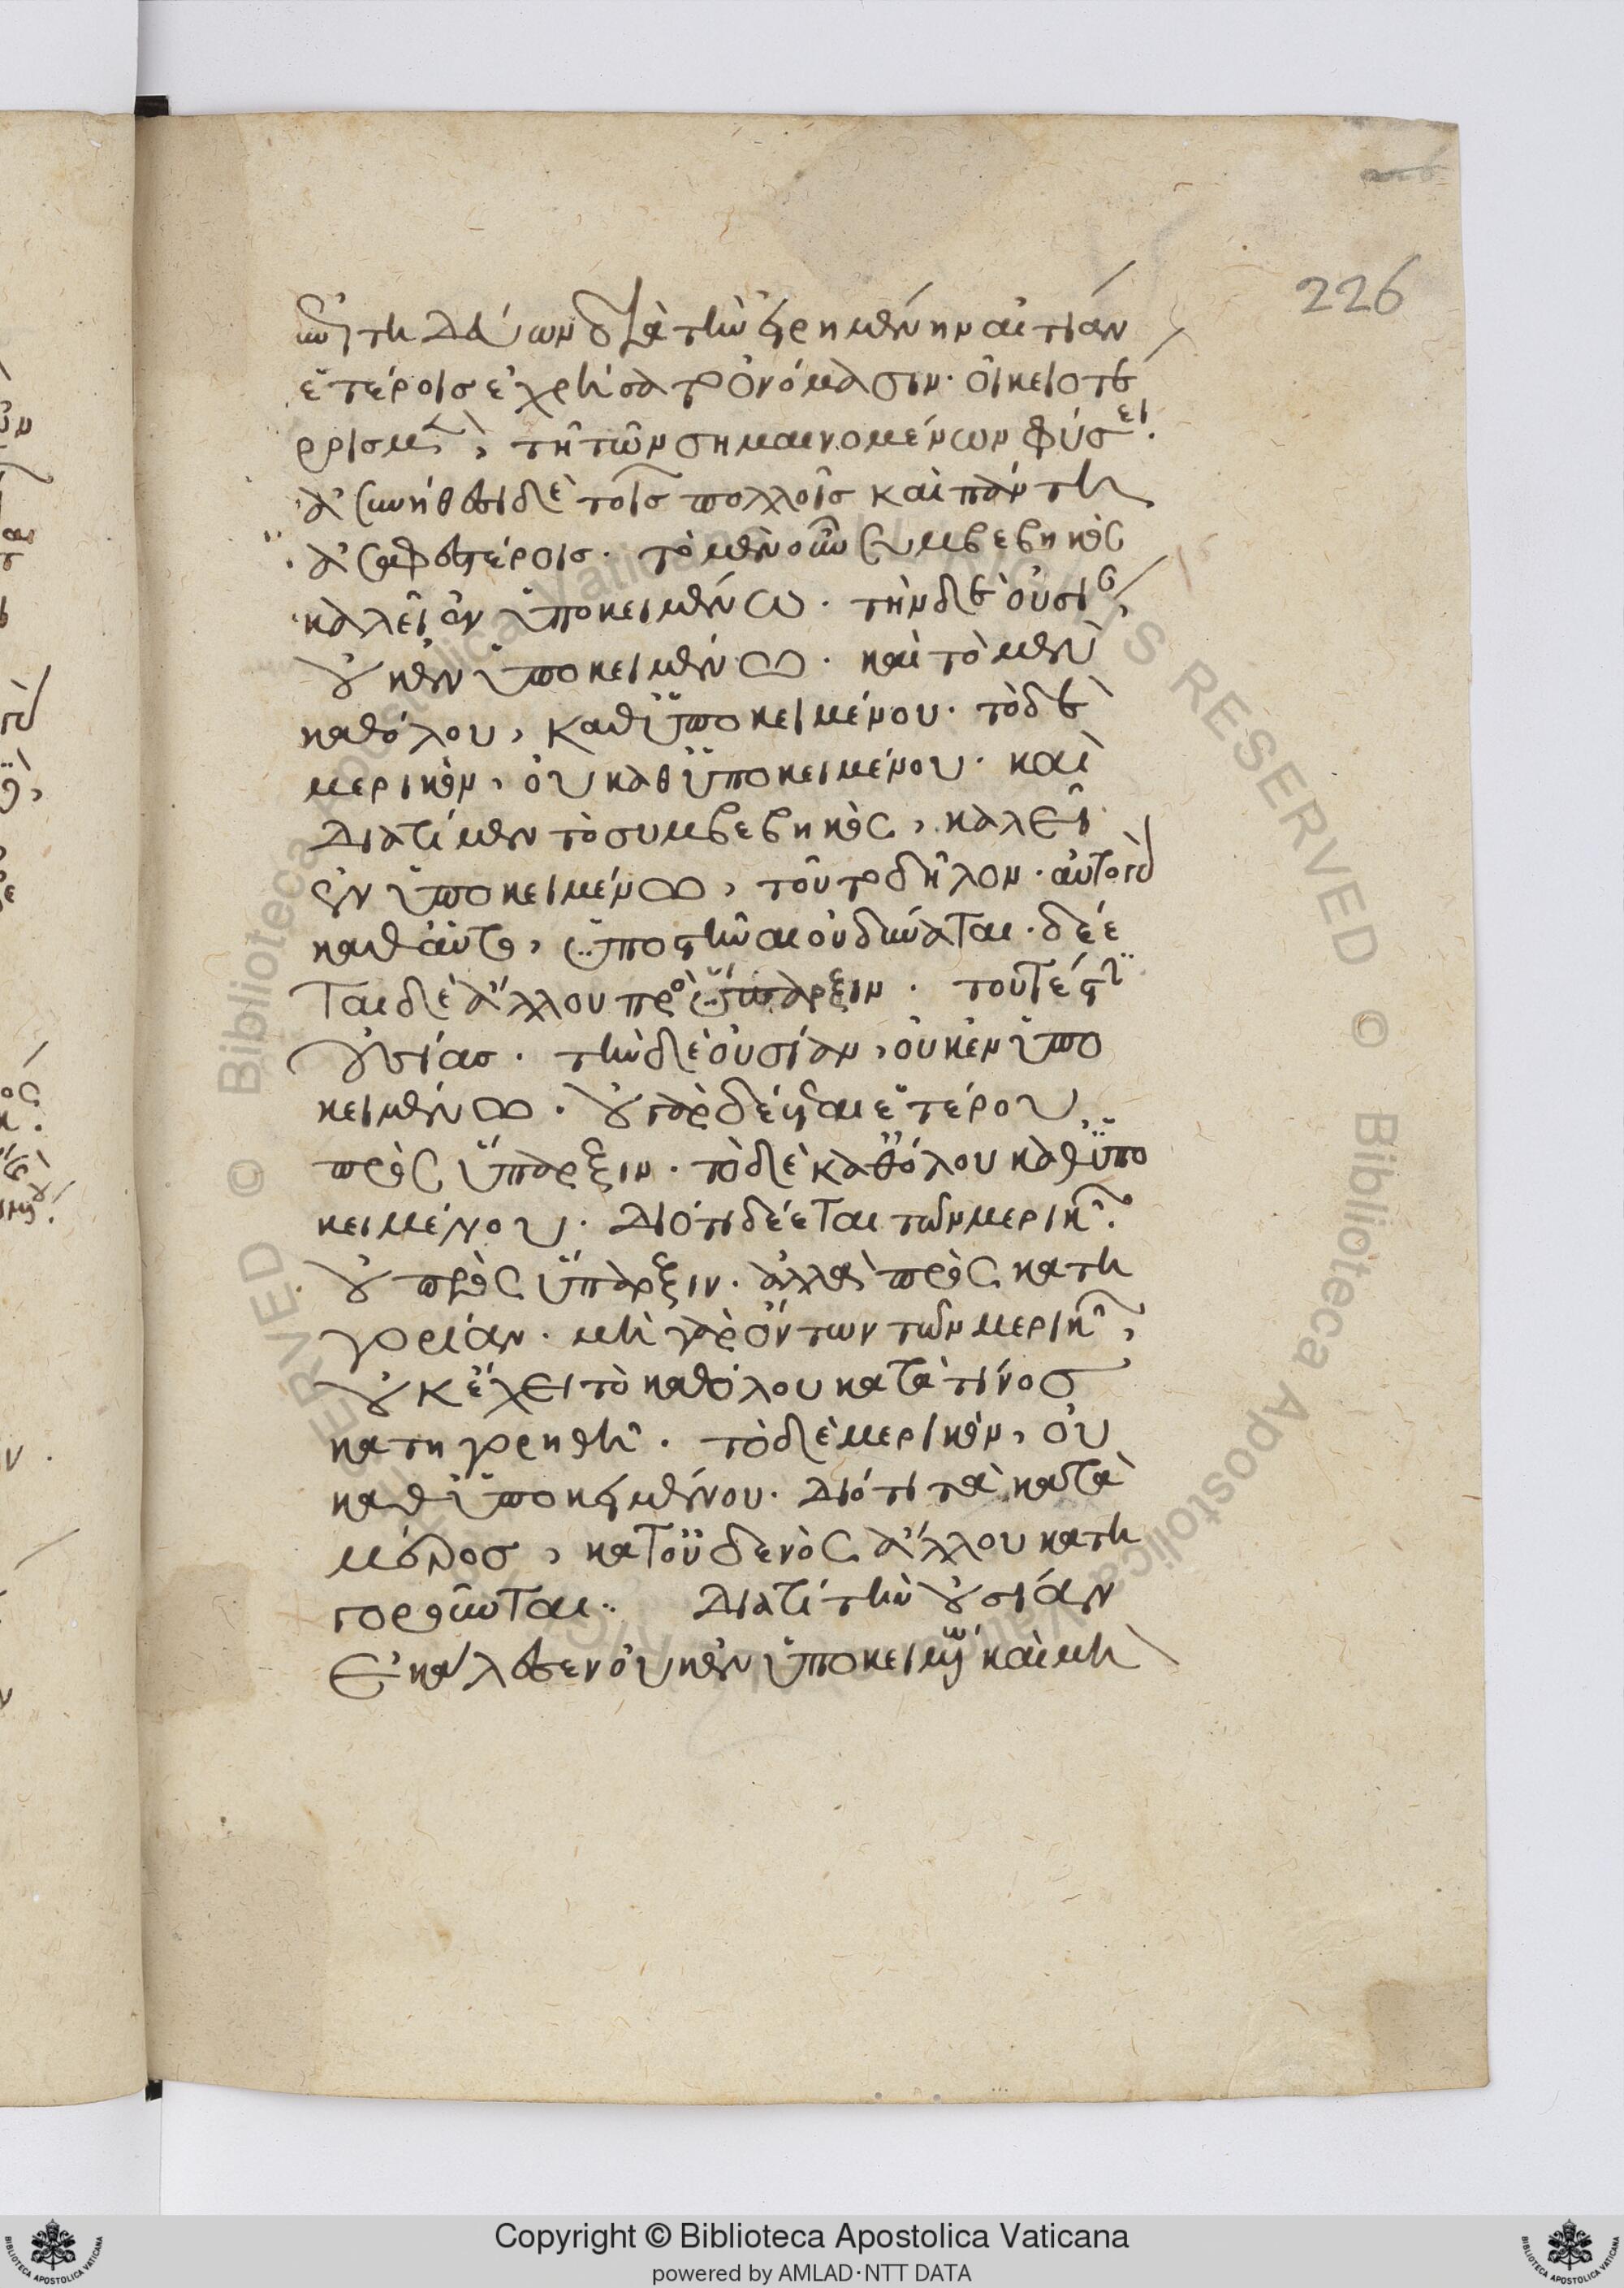 226
ἑτέροις ἐχρήσατο ὀνόμασιν. οἰκείοις τε
τῇ τῶν σημαινομένων φύσει.
ἀσυνήθεσι δὲ τοῖς πολλοῖς καὶ πάντη
ἀσαφεστέροις. τὸ μὲν οὖν συμβεβηκὸς
καλεῖ ἐν ὑποκειμένω. τὴν δὲ οὐσίαν,
οὐκ ἐν ὑποκειμένω. καὶ τὸ μὲν
καθόλου, καθ ὑποκειμένου. τὸ δὲ
μερικὸν, οὐ καθ ὑποκειμένου. καὶ
διατί μὲν τὸ συμβεβηκὸς, καλεῖ
ἐν ὑποκειμένω, τοῦτο δῆλον. αὐτὸ γὰρ
καθ αὑτὸ, ὑποστῆναι οὐ δύναται. δέε
ται δὲ ἄλλου πρὸς ὕπαρξιν. τουτέστι
οὐσίας. τὴν δὲ οὐσίαν, οὐκ ἐν ὑπο
κειμένω. οὐ γὰρ δέεται ἑτέρου
πρὸς ὕπαρξιν. τὸ δὲ καθόλου καθ ὑπο
κειμένου. διότι δέεται τῶν μερικῶν.
οὐ πρὸς ὕπαρξιν. ἀλλὰ πρὸς κατη
γορίαν. μὴ γὰρ ὄντων τῶν μερικῶν,
οὐκ ἔχει τὸ καθόλου κατὰ τίνος
κατηγορηθῆ. τὸ δὲ μερικὸν, οὐ
καθ ὑποκειμένου. διότι τὰ κατὰ
μέρος, κατ οὐδενὸς ἄλλου κατη
γοροῦνται.. διατί τὴν οὐσίαν
ἐκάλεσεν οὐκ ἐν ὑποκειμένω καὶ μὴ
Copyright © Biblioteca Apostolica Vaticana
powered by AMLAD·NTT DATA